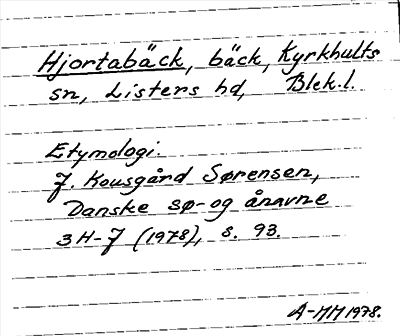 Hjortabäck, bäck, Kyrkhults
sn, Listers hd, Blek.l.
Etymologi.
J. Kousgård Sørensen,
Danske sø- og ånavne
3 H-J (1978), s. 93.
A-MM 1978.